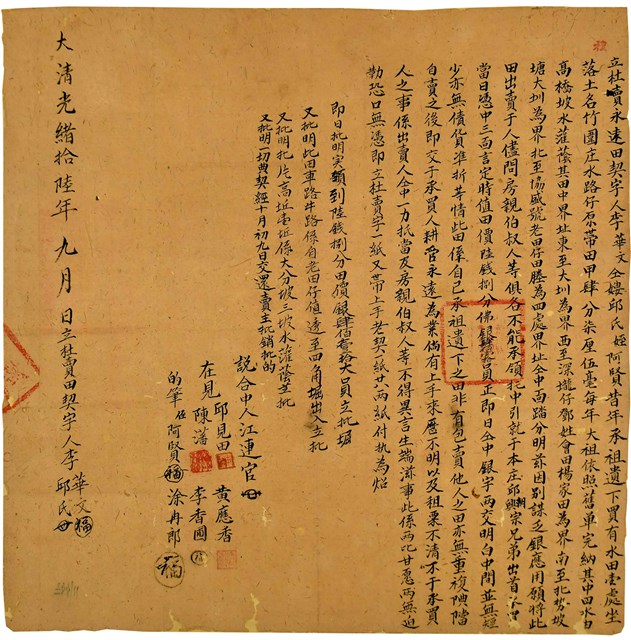 立杜賣永遠田契字人李華文仝嫂邱氏姪阿賢昔年承祖遺下買有水田壹處坐
落土名竹圍庄水路仔原帶田甲肆分柒厘伍毫每年大租依照舊單完納其中田水由
高橋坡水灌蔭其田中界址東至大圳為界西至深壠仔鄧姓會田楊家田為界南至北勢坡
塘大圳為界北至協盛號老田仔田塍為四處界址仝中面踏分明茲因別謀乏銀應用願將此
田出賣于人儘問房親伯叔人等俱各不能承領托中引就于本庄邱朝宗兄弟出首承買
當日憑中三面言定時值田價陸錢捌分佛銀大員正即日仝中銀字兩交明白中間並無短
少亦無債貨准折等情此田係自己承祖遺下之田非有包賣他人之田亦無重複典當
自賣之後即交于承買人耕管永遠為業倘有上手來歷不明以及租粟不清不干承買
人之事係出賣人仝中一力抵當及房親伯叔人等不得異言生端滋事此係兩比甘愿兩無迫
勒恐口無憑即立杜賣字一紙又帶上手老契紙廿兩紙付執為炤
即日批明實領到陸錢捌分田價銀肆佰大員立批炤
又批明此田車路牛路係自老田仔值透至四角堀出入立批
又批明北片高坵壹坵係大分坡三坡水灌蔭立批
又批明司費契經十月初九日交還賣主批銷批的
說合中人江連官
在見 邱見田 黃應香
陳藩 李香圃
的筆 姪阿賢 福 涂冉郎 福
大清光緒拾陸年九月 日立杜賣田契字人李華文 福
邱氏